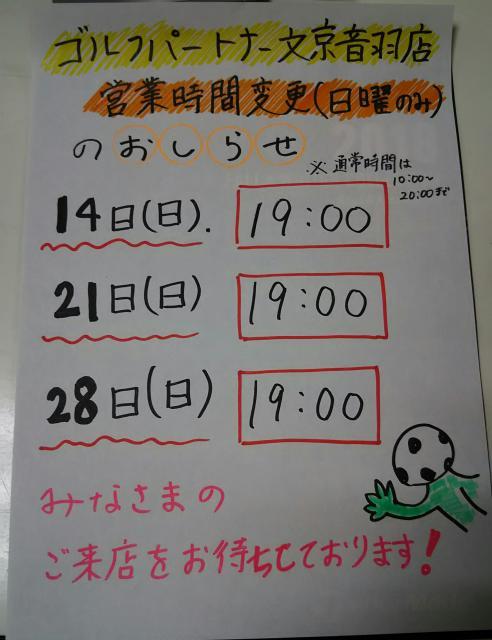 ゴルフパートナー文京音羽店
営業時間変更(日曜のみ)
のおしらせ
※通常時間は
10:00〜
20:00まで
14日(日). 19:00
21日(日) 19:00
28日(日) 19:00
みなさまの
ご来店をお待ちしております!